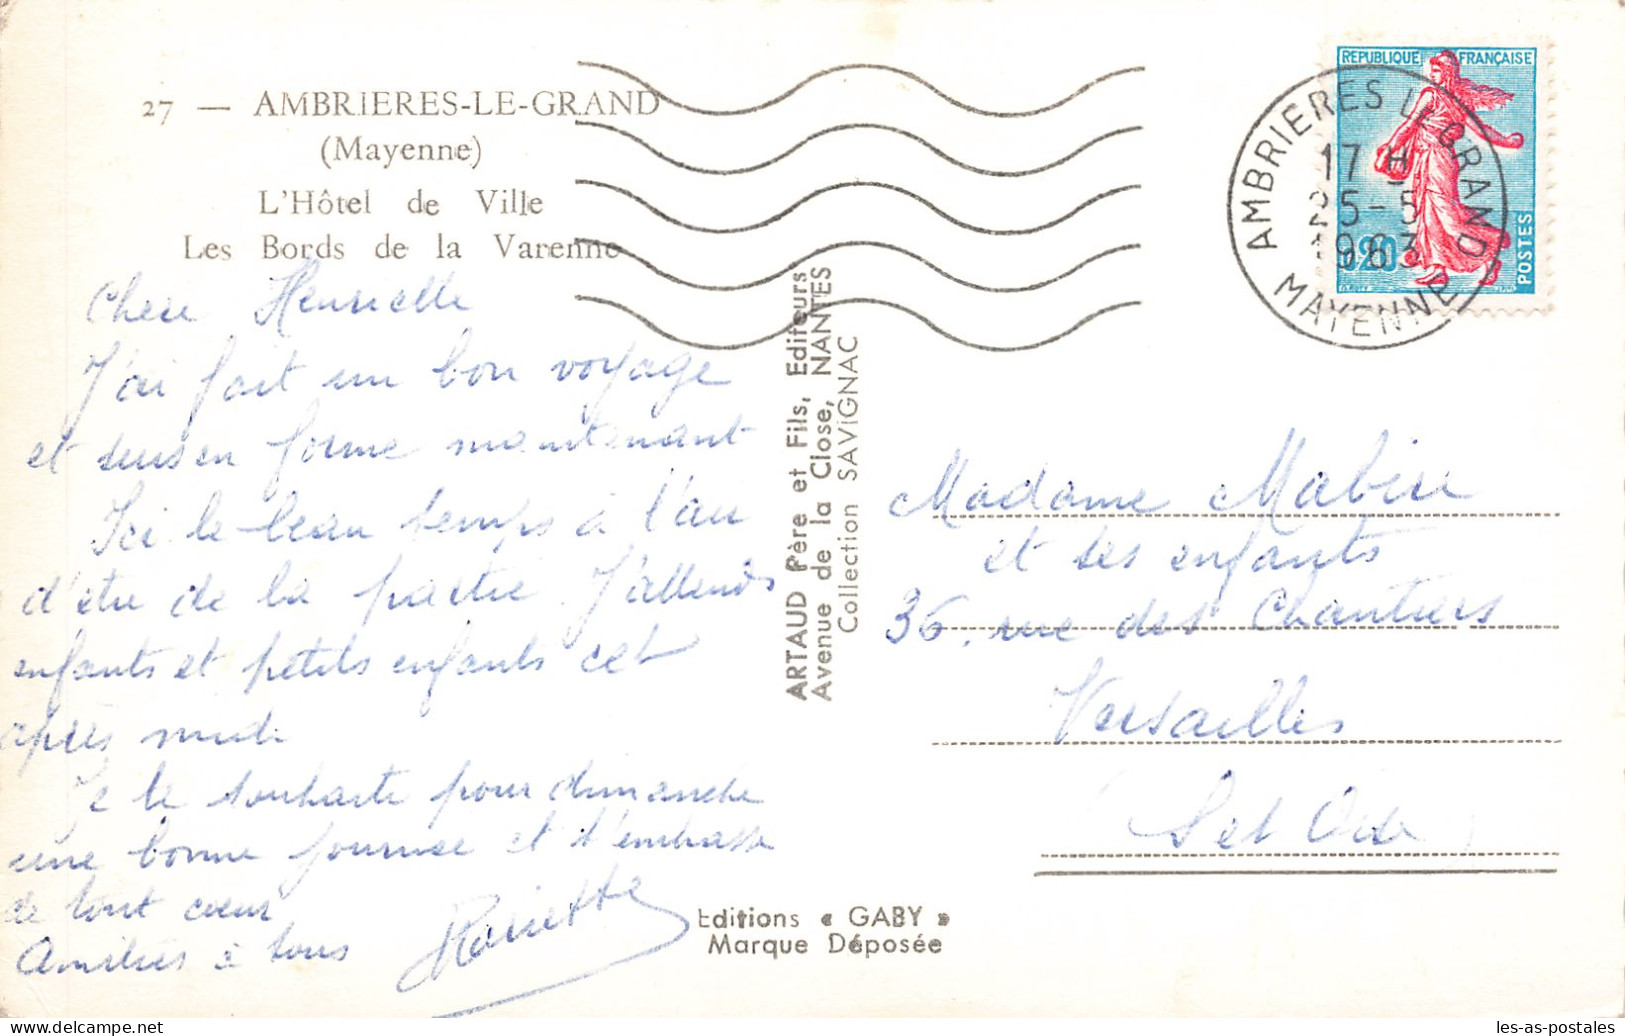 27 — AMBRIERES-LE-GRAND
(Mayenne)
L'Hôtel de Ville
Les Bords de la Varenne
REPUBLIQUE FRANÇAISE
0,20
POSTES
AMBRIERES LE GRAND
17 H
25-5
1963
MAYENNE
Chere Henriette
J'ai fait un bon voyage
et suis en forme maintenant
Ici le beau temps a l'air
d'être de la partie J'attends
enfants et petits enfants cet
après midi
Je te souhaite pour dimanche
une bonne journée et t'embrasse
de tout cœur
Amitiés à tous
ARTAUD Père et Fils, Editeurs
Avenue de la Close, NANTES
Collection SAVIGNAC
Madame
et ses enfants
36, rue des Chantiers
Versailles
(S et Oise)
Editions « GABY »
Marque Déposée
les-as-postales
https://www.delcampe.net